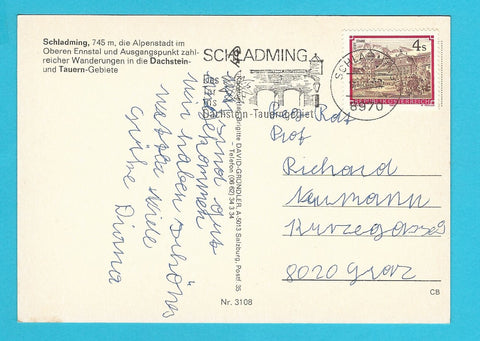 Schladming, 745 m, die Alpenstadt im
Oberen Ennstal und Ausgangspunkt zahl-
reicher Wanderungen in die Dachstein-
und Tauern-Gebiete
SCHLADMING
das
Dachstein-Tauerngebiet
SCHLADMING
8970
4 S
REPUBLIK ÖSTERREICH
Brigitte DAVID-GRÜNDLER, A-5013 Salzburg, Postf. 35
– Telefon (06 62) 34 3 34
Wir sind gut
angekommen
wir haben schönes
Grüße Diana
Reg Rat
Prof
Richard
Neumann
Kurzegasse 9
8020 Graz
Nr. 3108
CB